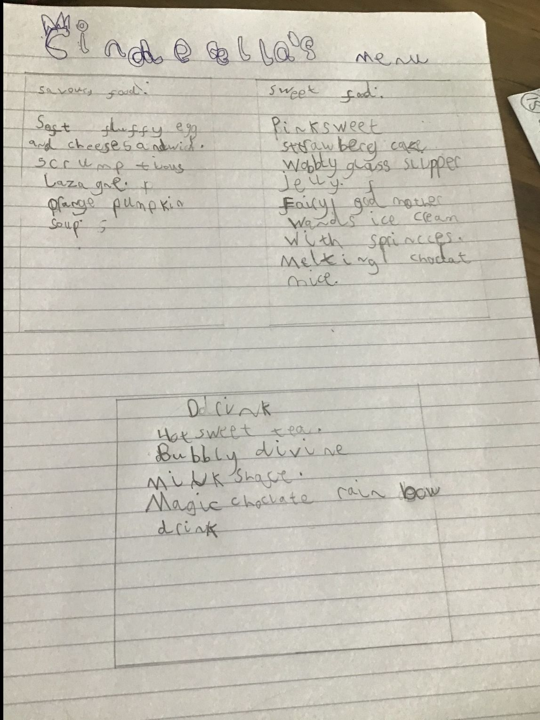 Cinderella's menu
savoury food:
Soft fluffy egg
and cheese sandwich.
scrumptious
Lazagne.
orange pumpkin
soup
sweet food:
Pink sweet
strawberry cake
Wobbly glass slipper
jelly.
Fairy god mother
wands ice cream
with sprincces.
Melting choclat
mice.
Drink
Hot sweet tea.
Bubbly divine
Milk shake.
Magic choclate rain bow
drink